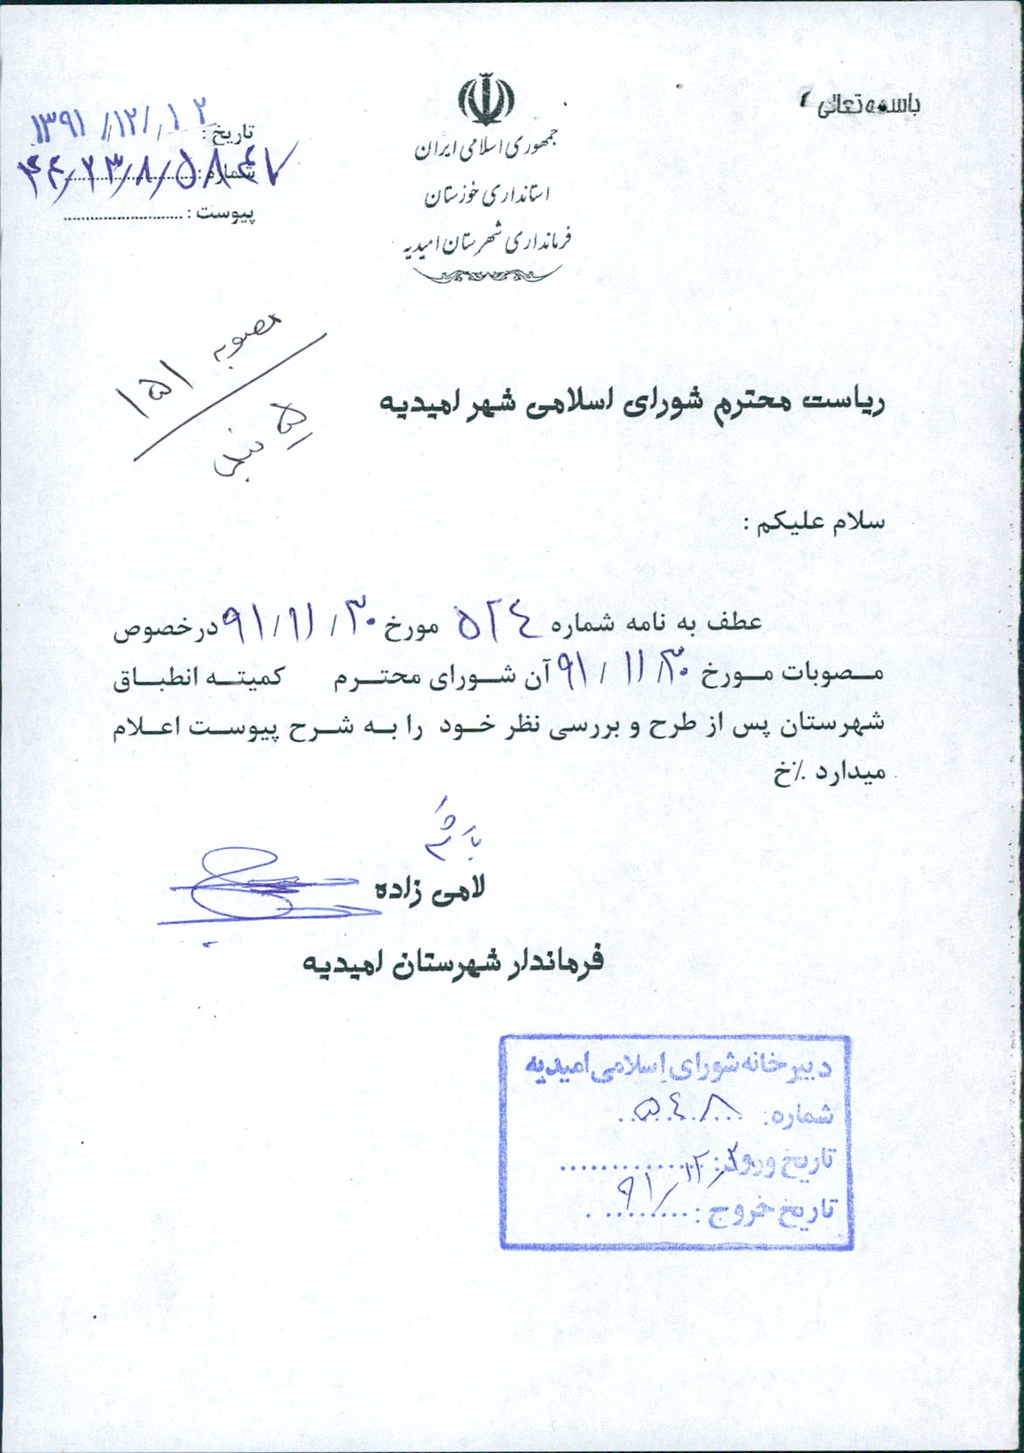 باسمه تعالی
جمهوری اسلامی ایران
استانداری خوزستان
فرمانداری شهرستان امیدیه
تاریخ : ۱۳۹۱/۱۲/۱۲
شماره : ۴۴/۲۳/۸/۵۸۴۷
پیوست : ..........................
مصوبه ۱۵۱
ریاست محترم شورای اسلامی شهر امیدیه
سلام علیکم :
عطف به نامه شماره ۵۲۴ مورخ ۹۱/۱۱/۳۰ درخصوص
مصوبات مورخ ۹۱/۱۱/۳۰ آن شورای محترم کمیته انطباق
شهرستان پس از طرح و بررسی نظر خود را به شرح پیوست اعلام
میدارد ٪خ
لامی زاده
فرماندار شهرستان امیدیه
دبیرخانه شورای اسلامی امیدیه
شماره: ۵۴۰۸
تاریخ ورود: ۹۱/۱۲/۲
تاریخ خروج : ..........